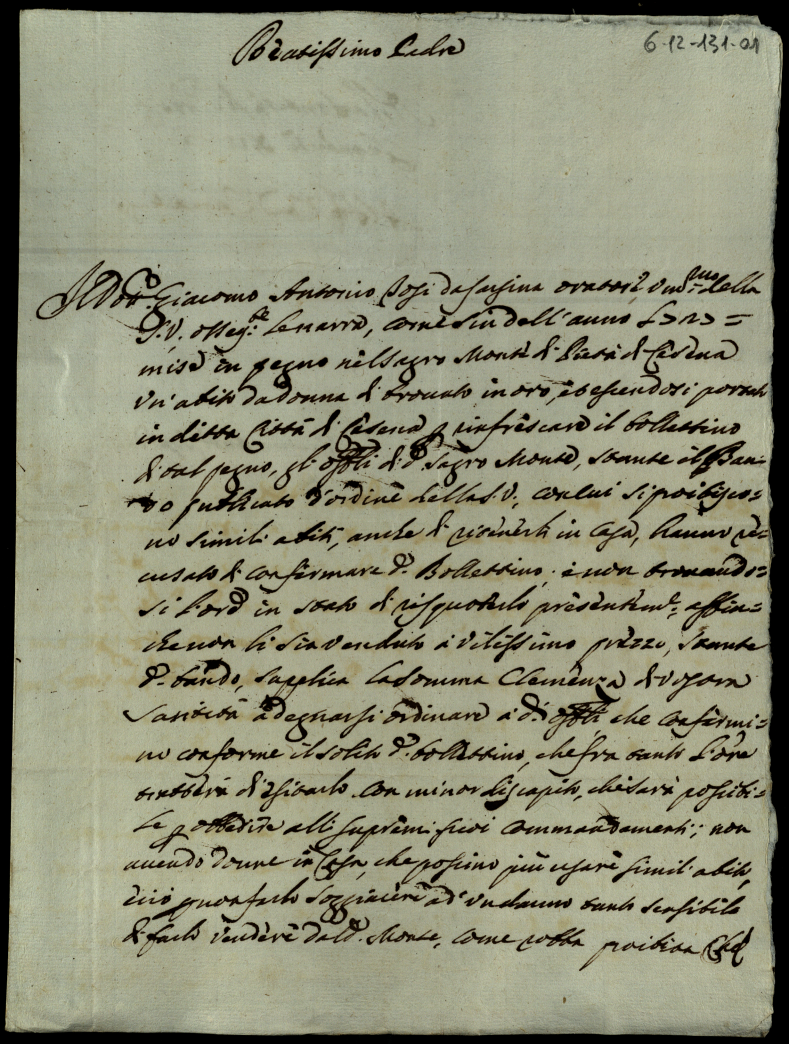 6-12-131-01
Beatissimo Padre
Il Dott.re Giacomo Antonio da Sarsina oratore um.mo della
S.V. osseq.te le narra, come sin dell'anno 1727 =
mise in pegno nel sagro Monte di Pietà di Cesena
un'abito da donna di broccato in oro, et essendosi portato
in detta Città di Cesena p rinfrescare il bollettino
di tal pegno, gli offli di d.o Sagro Monte, stante il Ban=
do publicato d'ordine della S.V., con cui si proibisco=
no simili abiti, anche di ritenerli in casa, hanno re=
cusato di confermare d.o Bollettino; e non trovando=
si l'ore in stato di risquoterlo presentem.te, affin=
che non li sia venduto a vilissimo prezzo, stante
d.o bando, supplica la somma Clemenza di vostra
Santità a degnarsi ordinare a d.i offli, che confermi=
no conforme il solito d.o bollettino, che fra tanto l'ore
tratterà d'esitarlo con minor discapito, che sarà possibi=
le p obbedire alli supremi suoi commandamenti; non
avendo donne in Casa, che possino più usare simili abiti,
e ciò p non farlo soggiacere ad un danno tanto sensibile
di farlo vendere dal d.o Monte, come robba proibita Che